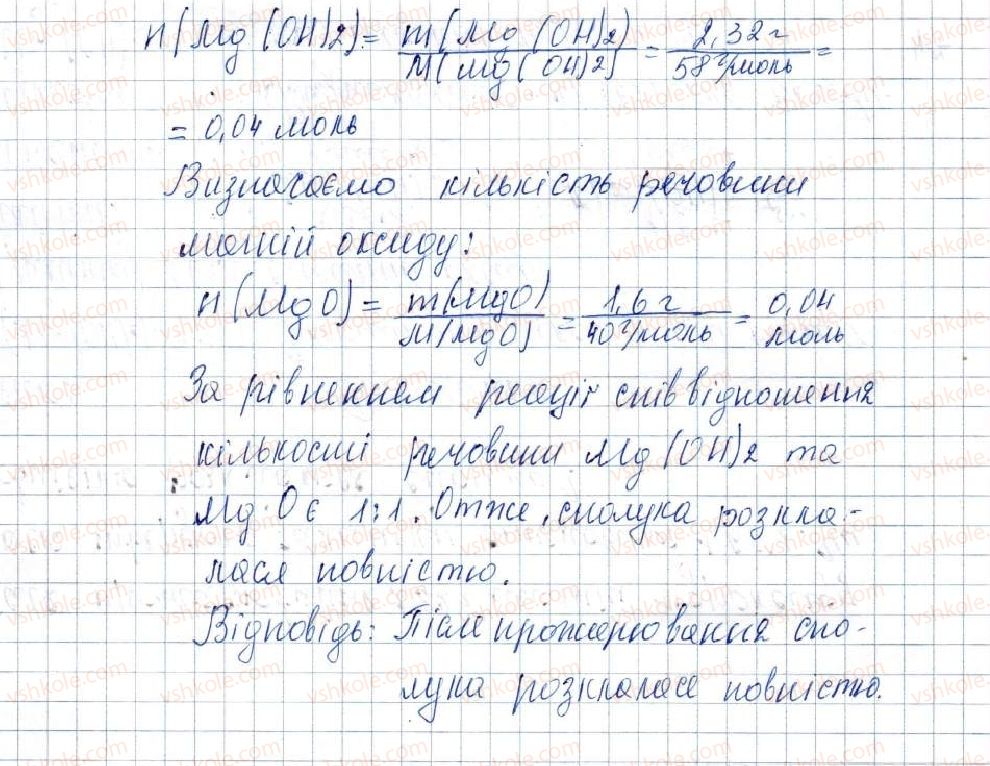 n(Mg(OH)2) = m(Mg(OH)2) / M(Mg(OH)2) = 2,32 г / 58 г/моль =
= 0,04 моль
Визначаємо кількість речовини
магній оксиду:
n(MgO) = m(MgO) / M(MgO) = 1,6 г / 40 г/моль = 0,04 моль
За рівнянням реакції співвідношення
кількості речовини Mg(OH)2 та
MgO є 1:1. Отже, сполука розкла-
лася повністю.
Відповідь: Після прожарювання спо-
лука розклалася повністю.
vshkole.com